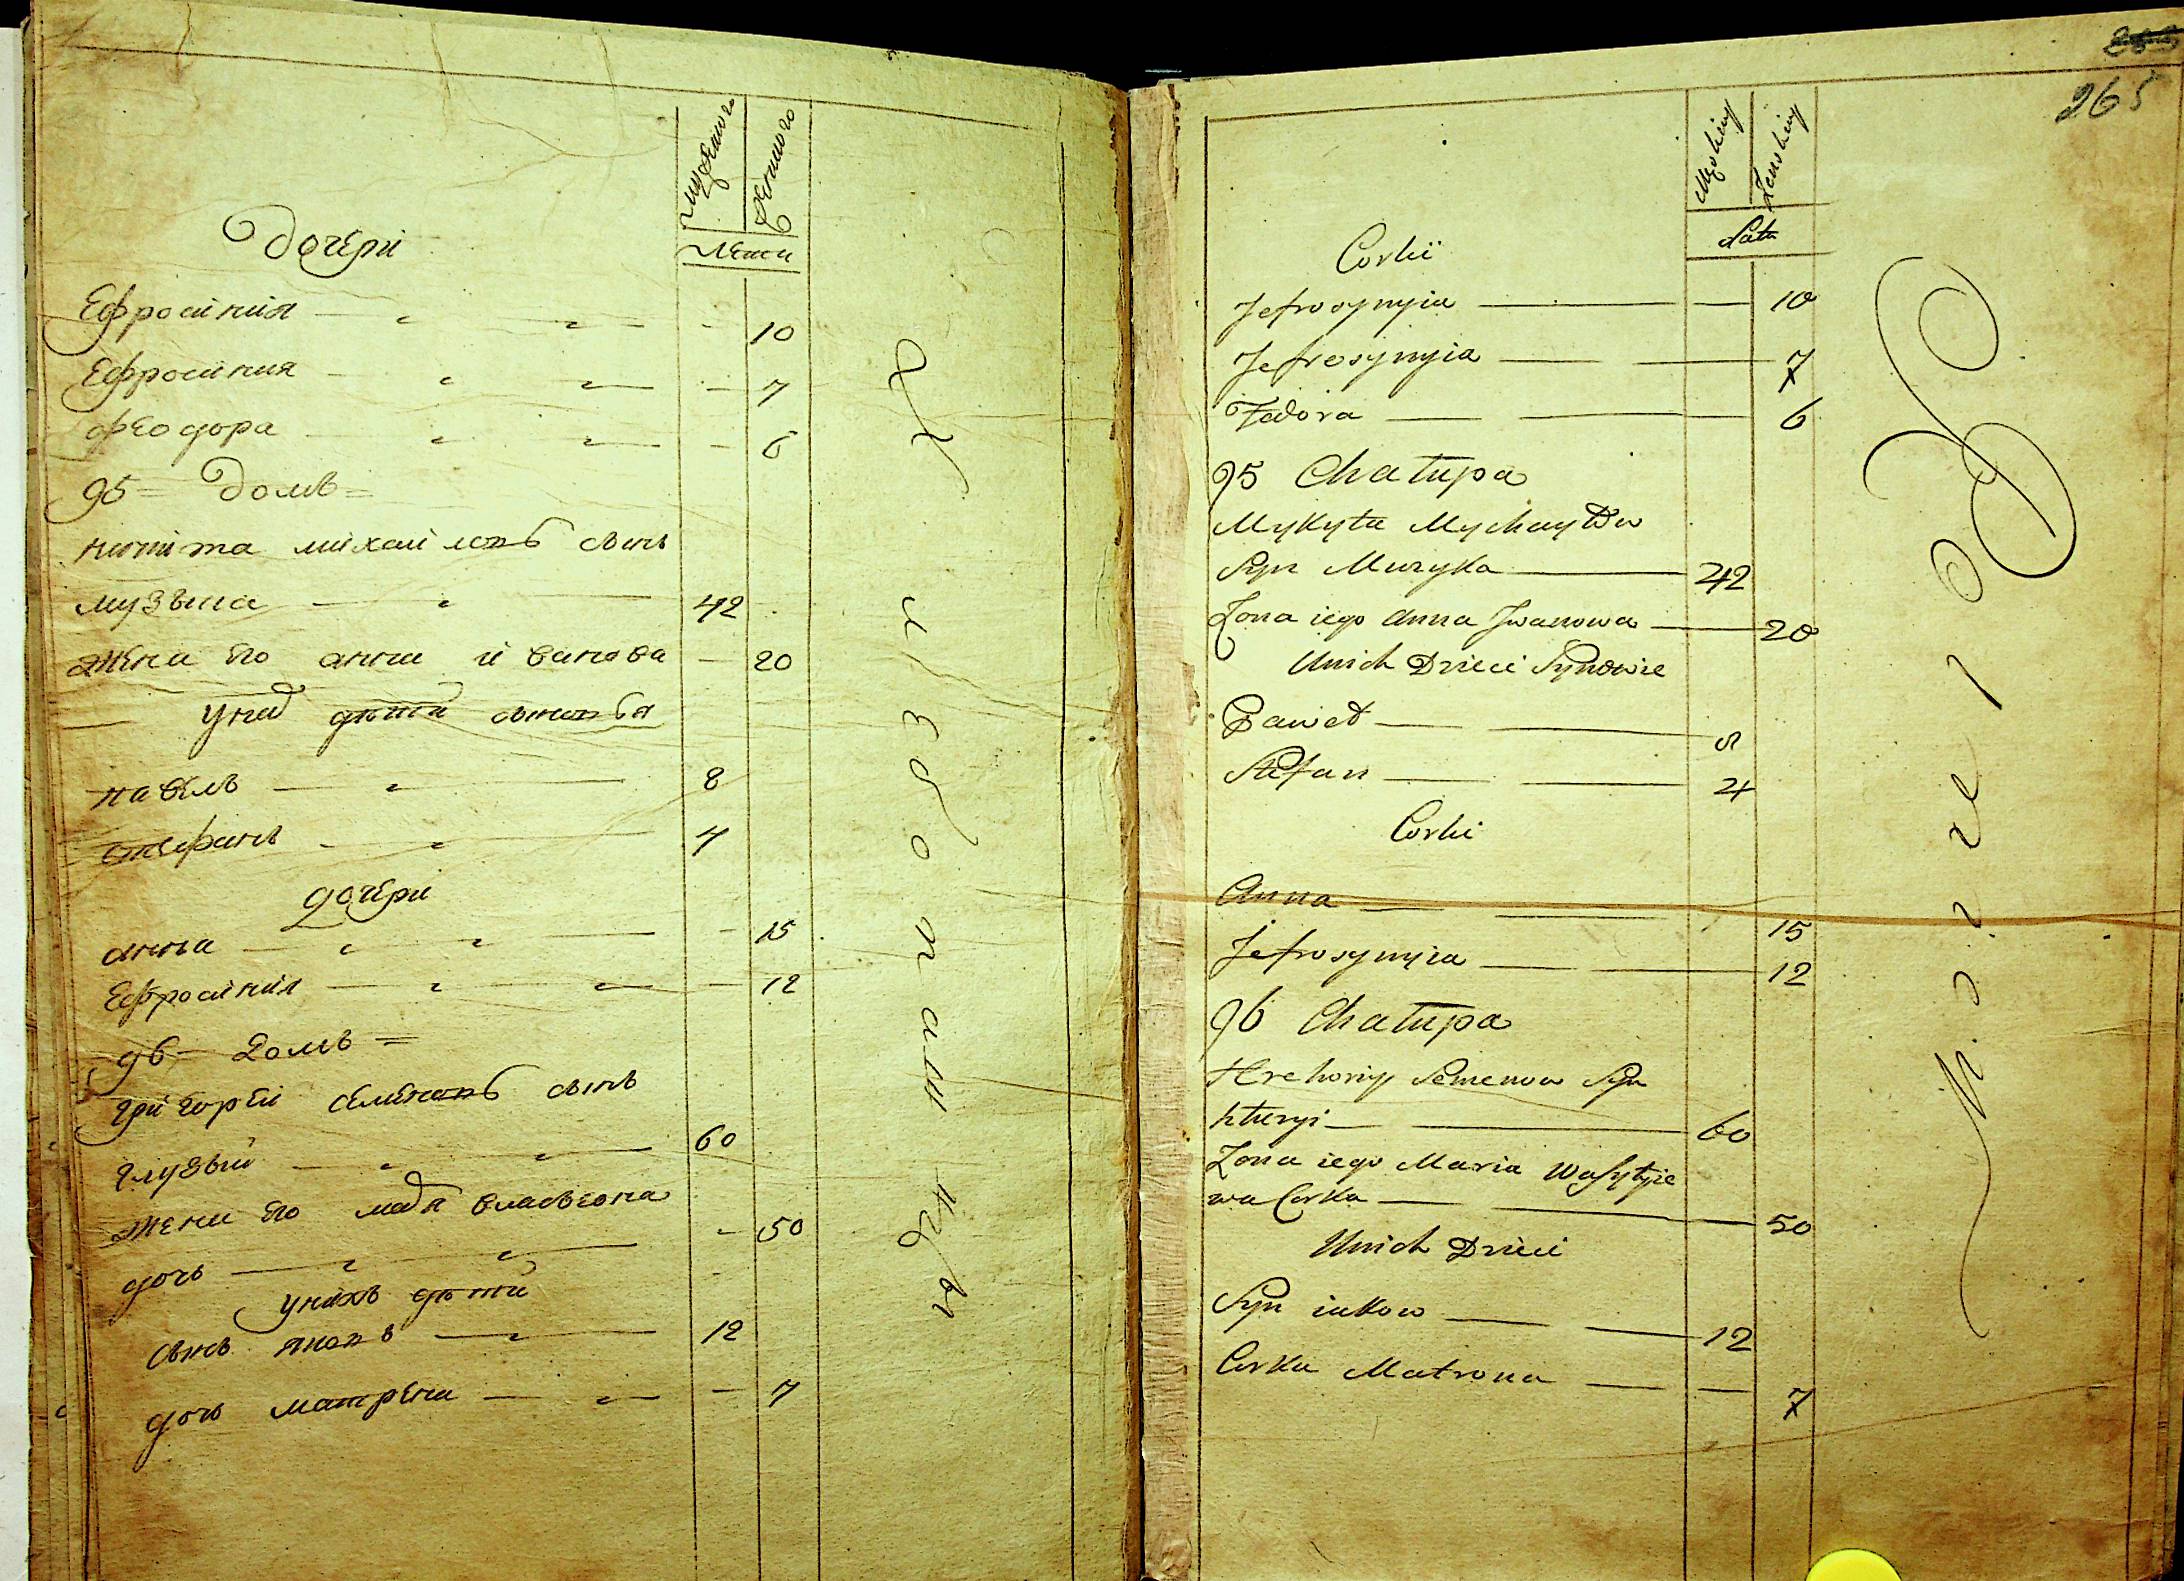 мужеска женска
лета
дочери
Ефросиния 10
Ефросиния 7
феодора 6
95 = домъ =
никита михаиловъ сынъ
музыка 42
жена его анна иванова 20
у них дѣти сыновья
павелъ 8
стефанъ 4
дочери
анна 15
Ефросиния 12
96 - домъ =
григорей семеновъ сынъ
глузый 60
жена его
дочь 50
у нихъ дѣти
сынъ яковъ 12
дочь матрена 7
265
Męskiey Zenskiey
Lata
Corki
Jefrosynyia 10
Jefrosynyia 7
Fedora 6
95 Chałupa
Mykyta Mychayłow
Syn Muzyka 42
Zona iego Anna Jwanowa 20
Unich Dzieci Synowie
Paweł 8
Stefan 4
Corki
Anna 15
Jefrosynyia 12
96 Chałupa
Hrehoriy Semenow Syn
hłuzyi 60
Zona iego Maria Wasylyie
wa Corka 50
Unich Dzieci
Syn iakow 12
Corka Matrona 7